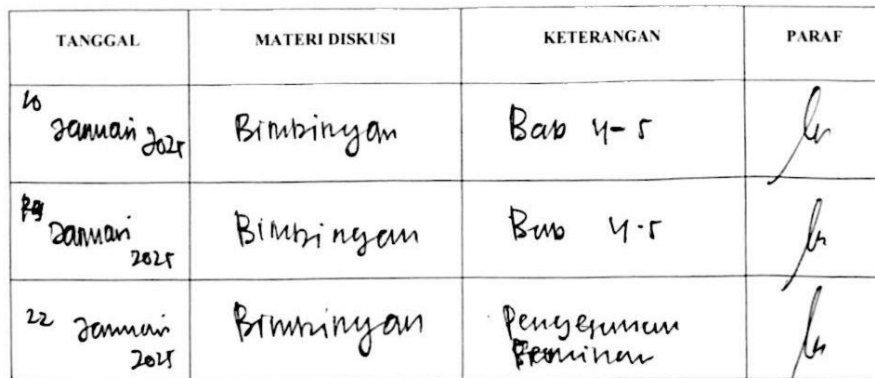 TANGGAL MATERI DISKUSI KETERANGAN PARAF
10 Januari 2025 Bimbingan Bab 4-5
Januari 2025 Bimbingan Bab 4-5
22 Januari 2025 Bimbingan